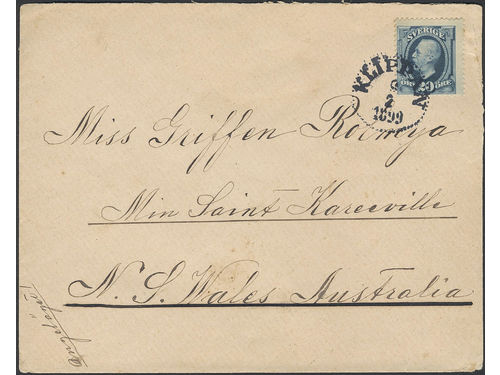 SVERIGE
20
ÖRE
KLIPPAN
2
1899
Miss Griffen Roomya
Min Saint Kareeville
N. S. Wales Australia